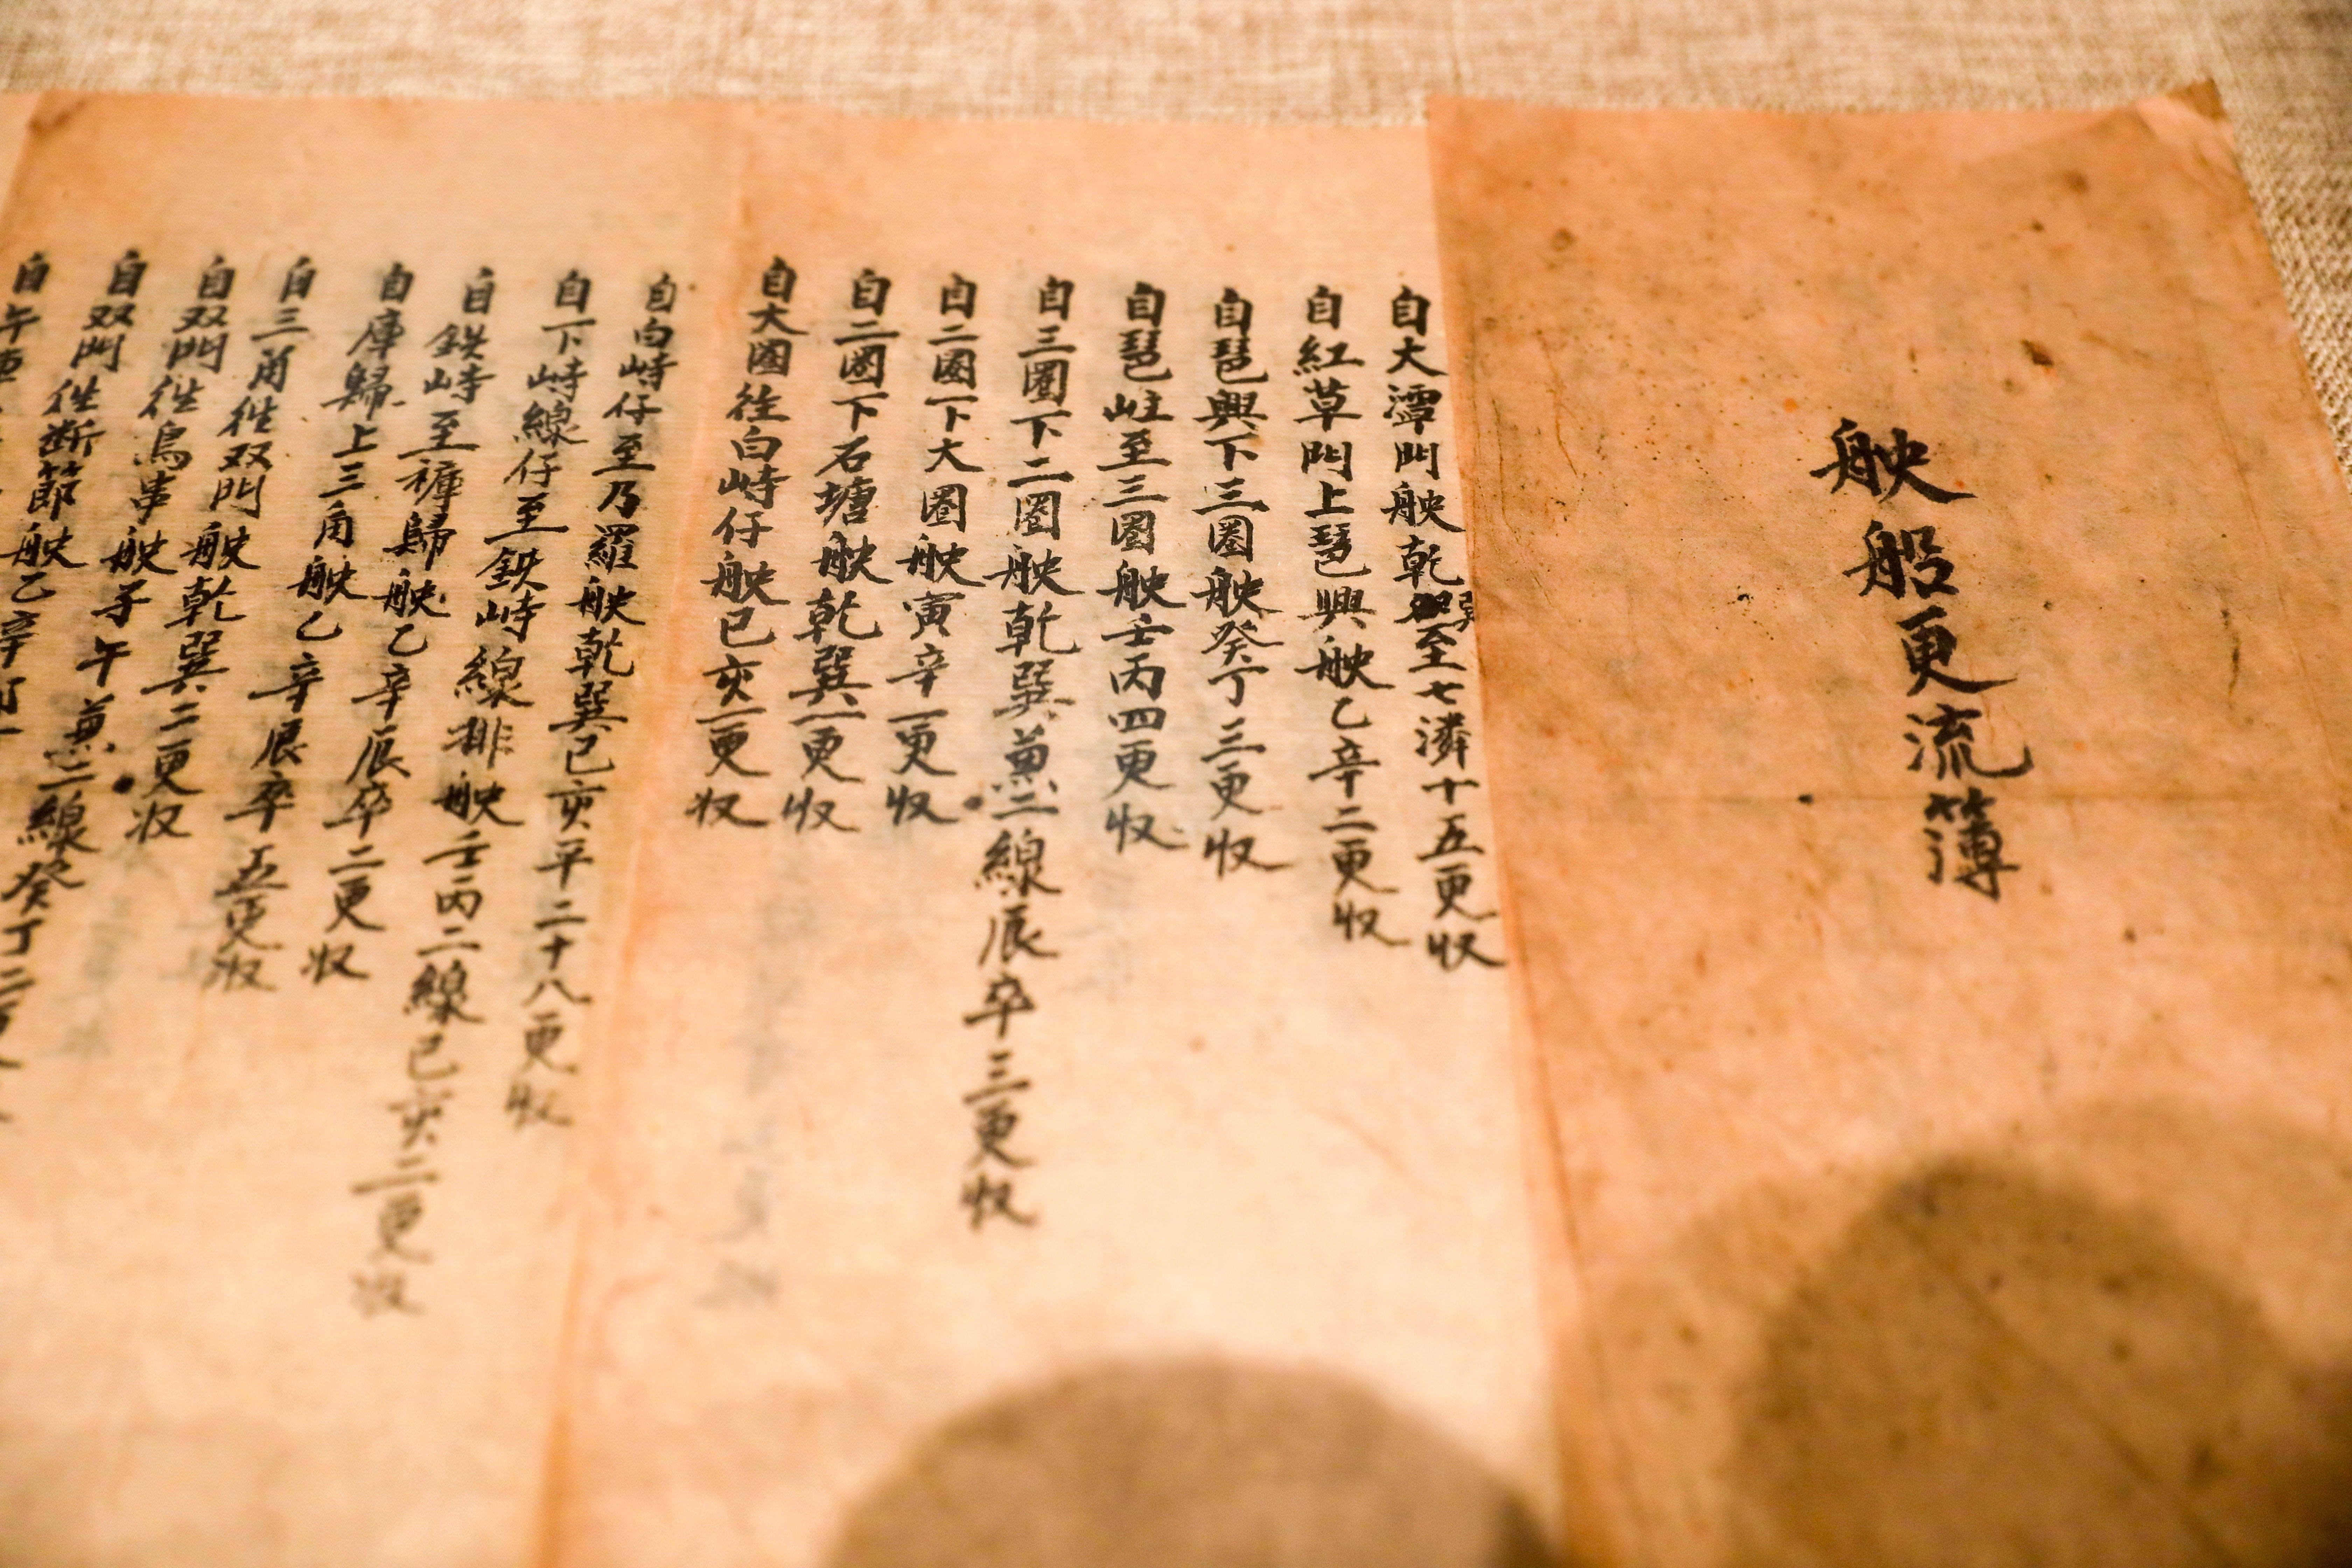 舦船更流簿
自大潭門舦乾巽至七潾十五更收
自紅草門上琶興舦乙辛二更收
自琶興下三圈舦癸丁三更收
自琶峌至三圈舦壬丙四更收
自三圈下二圈舦乾巽兼二線辰卒三更收
自二圈下大圈舦寅辛一更收
自二圈下石塘舦乾巽一更收
自大圈往白峙仔舦巳亥一更收
自白峙仔至乃羅舦乾巽巳亥平二十八更收
自下峙線仔至鉄峙線排舦壬丙二線巳亥二更收
自鉄峙至裤歸舦乙辛辰卒二更收
自庫歸上三角舦乙辛辰卒五更收
自三角往双門舦乾巽二更收
自双門往鳥串舦子午兼二線癸丁二更
自双門往断節舦乙辛
自午